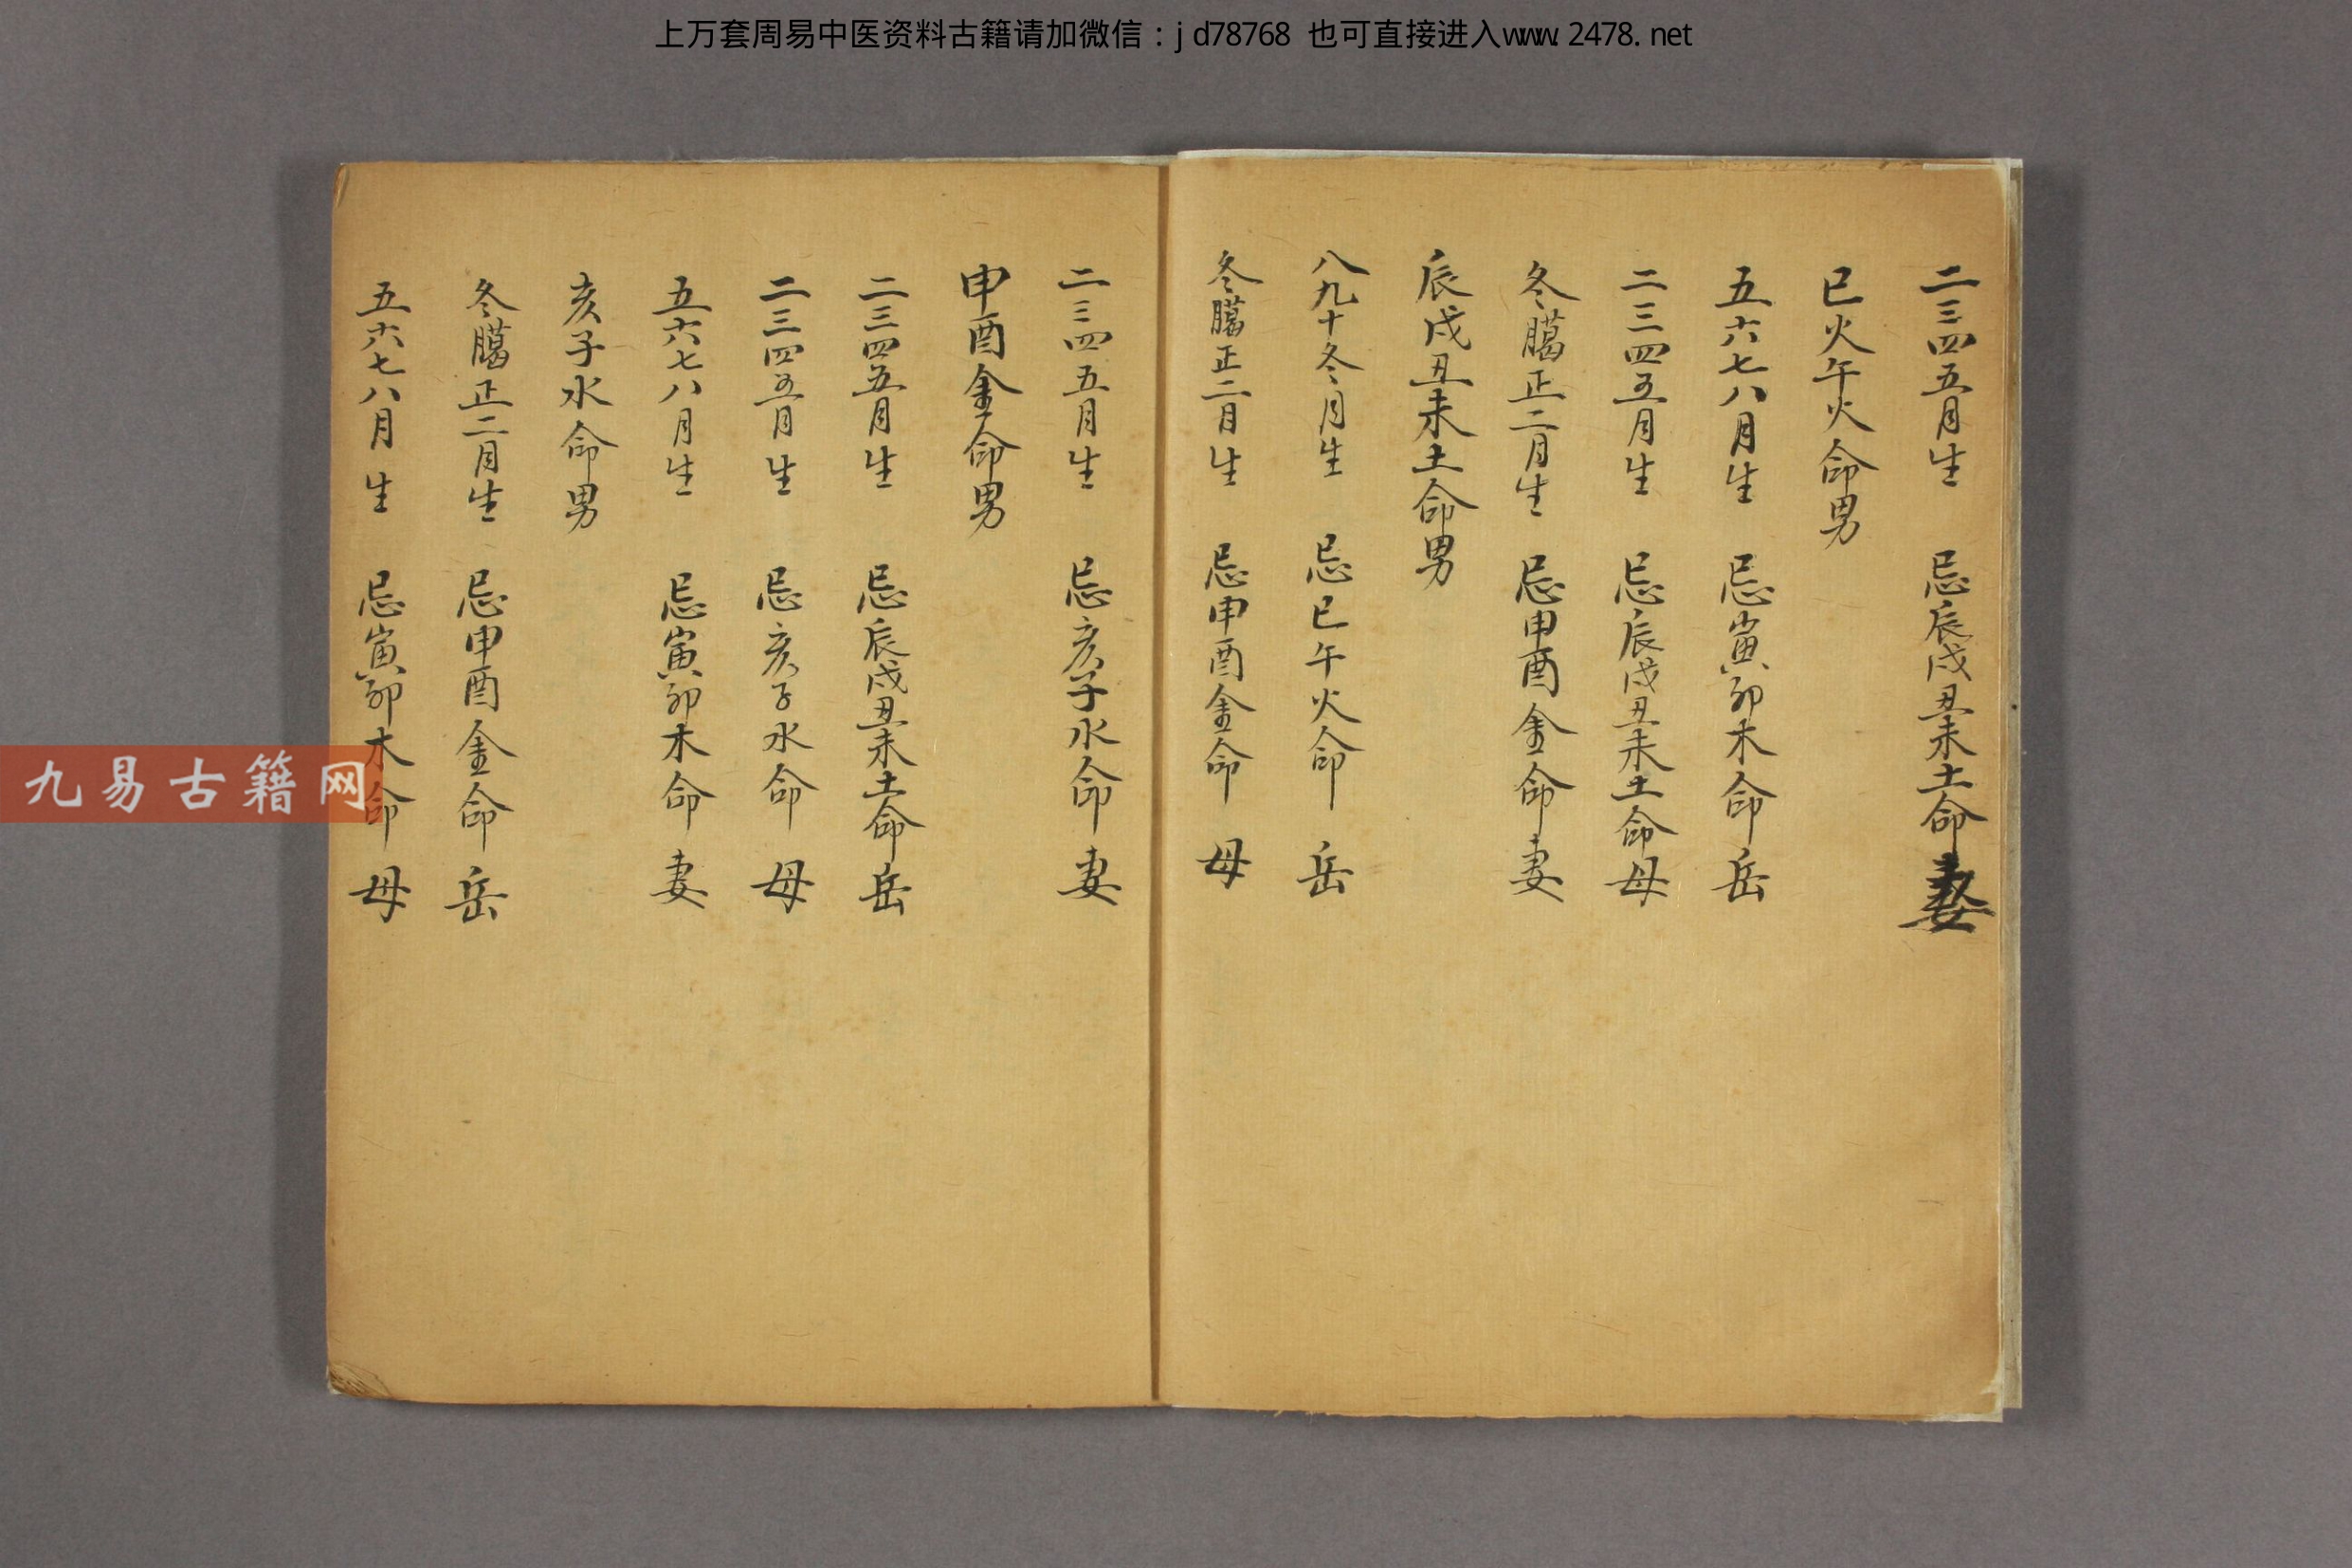 上万套周易中医资料古籍请加微信：jd78768 也可直接进入www.2478.net
二三四五月生 忌辰戌丑未土命妻
巳火午火命男
五六七八月生 忌寅卯木命岳
二三四五月生 忌辰戌丑未土命母
冬臈正二月生 忌申酉金命妻
辰戌丑未土命男
八九十冬月生 忌巳午火命 岳
冬臈正二月生 忌申酉金命 母
二三四五月生 忌亥子水命妻
申酉金命男
二三四五月生 忌辰戌丑未土命岳
二三四五月生 忌亥子水命 母
五六七八月生 忌寅卯木命 妻
亥子水命男
冬臈正二月生 忌申酉金命 岳
五六七八月生 忌寅卯木命 母
九易古籍网